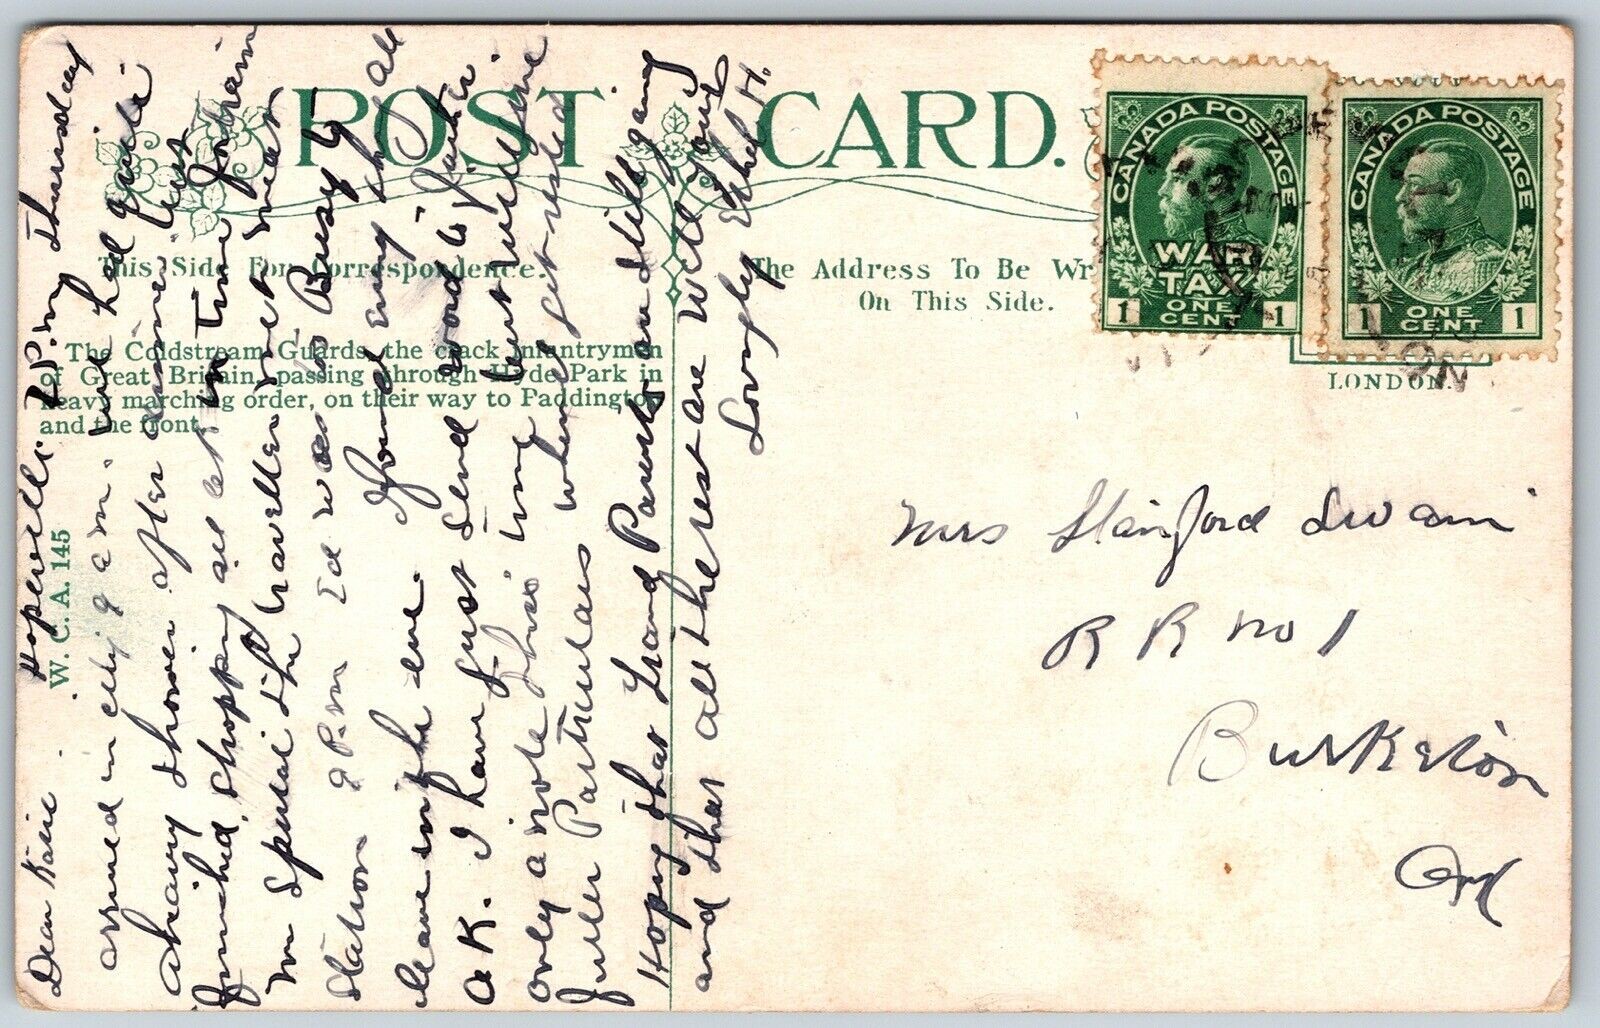 POST CARD.
This Side For Correspondence.
The Address To Be Wr
On This Side.
The Coldstream Guards, the crack infantrymen
of Great Britain, passing through Hyde Park in
heavy marching order, on their way to Paddington
and the front.
W. C. A. 145
LONDON.
CANADA POSTAGE
WAR
TAX
1 ONE CENT 1
CANADA POSTAGE
1 ONE CENT 1
Hopeville 2 P.M. Thursday
Dear
arrived in city 9 a.m. we had quite
a heavy shower after dinner just
finished shopping all at in time for train
travelled met
station 9 P.M Ed was so Busy to
leave in the eve. found every thing all
O.K. I have just send word to
only a note this time but will give
fuller Particulars when get rested
Hoping that Grand Parents are still gaing
and that all the rest are well any
Lovingly Ethel H.
Mrs Stanford Swain
R R no 1
Burketon
Ont